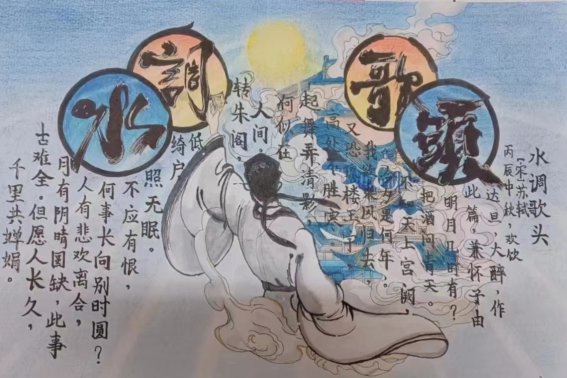 水調歌頭
水调歌头
[宋]苏轼
丙辰中秋，欢饮
达旦，大醉，作
此篇，兼怀子由
明月几时有？
把酒问青天。
不知天上宫阙，
今夕是何年。
我欲乘风归去，
又恐琼楼玉宇，
高处不胜寒。
起舞弄清影，
何似在
人间
转朱阁，
低
绮户，
照无眠。
不应有恨，
何事长向别时圆？
人有悲欢离合，
月有阴晴圆缺，此事
古难全。但愿人长久，
千里共婵娟。